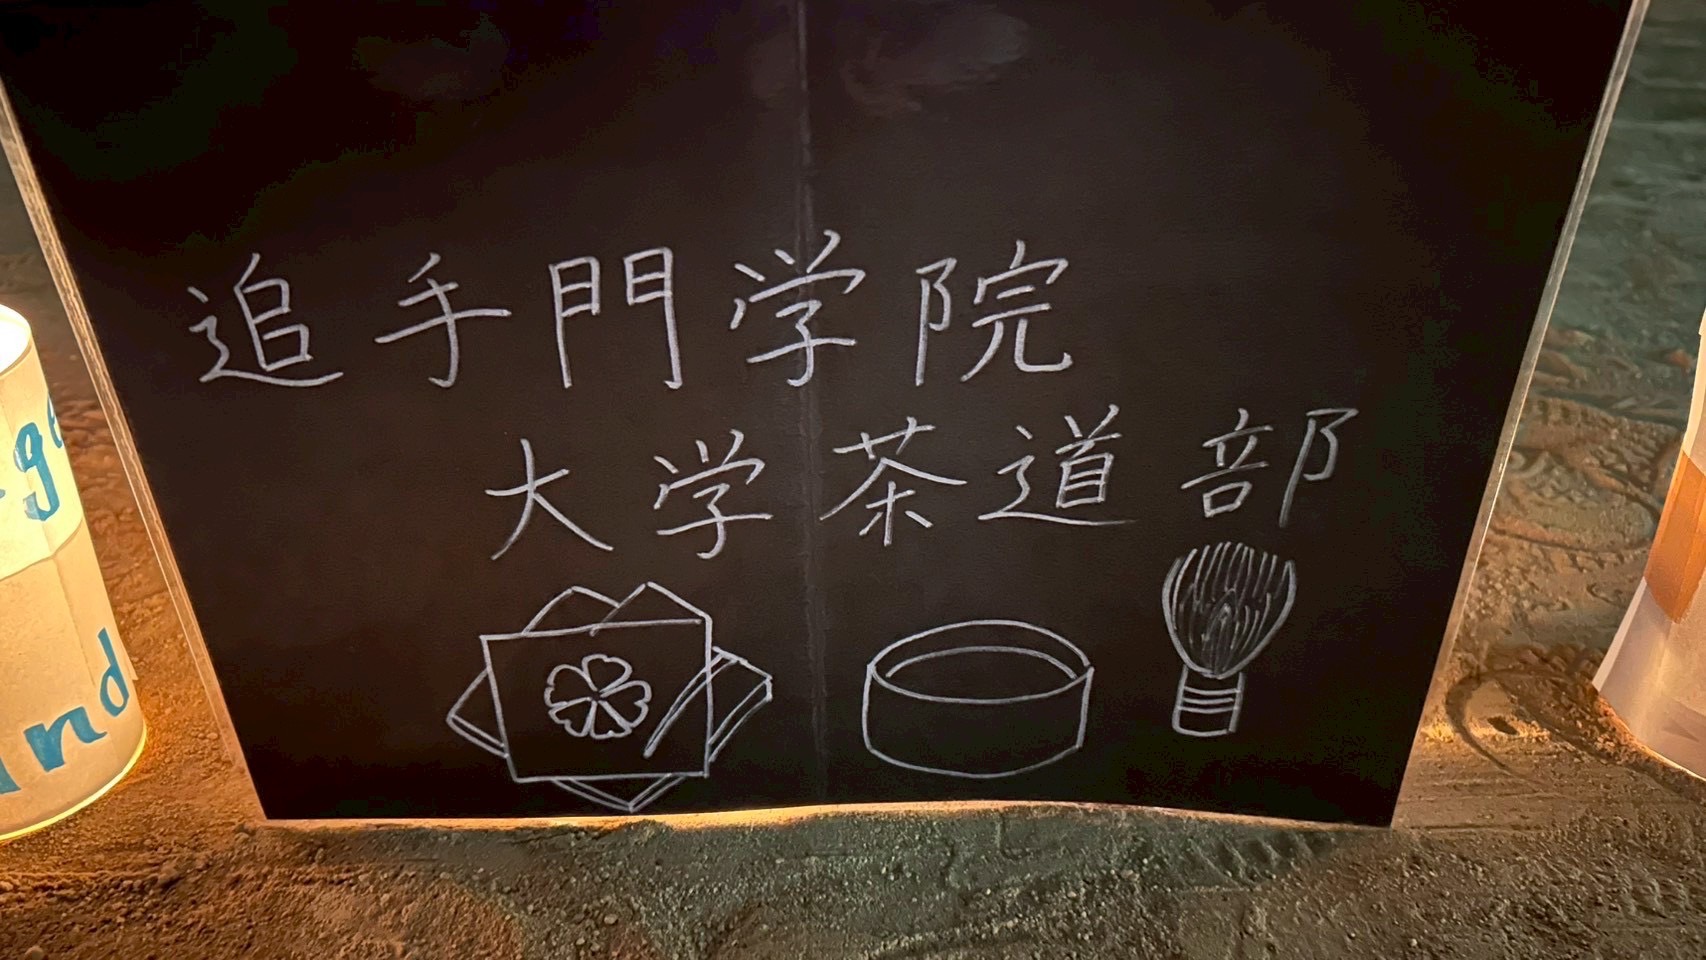 追手門学院
大学茶道部